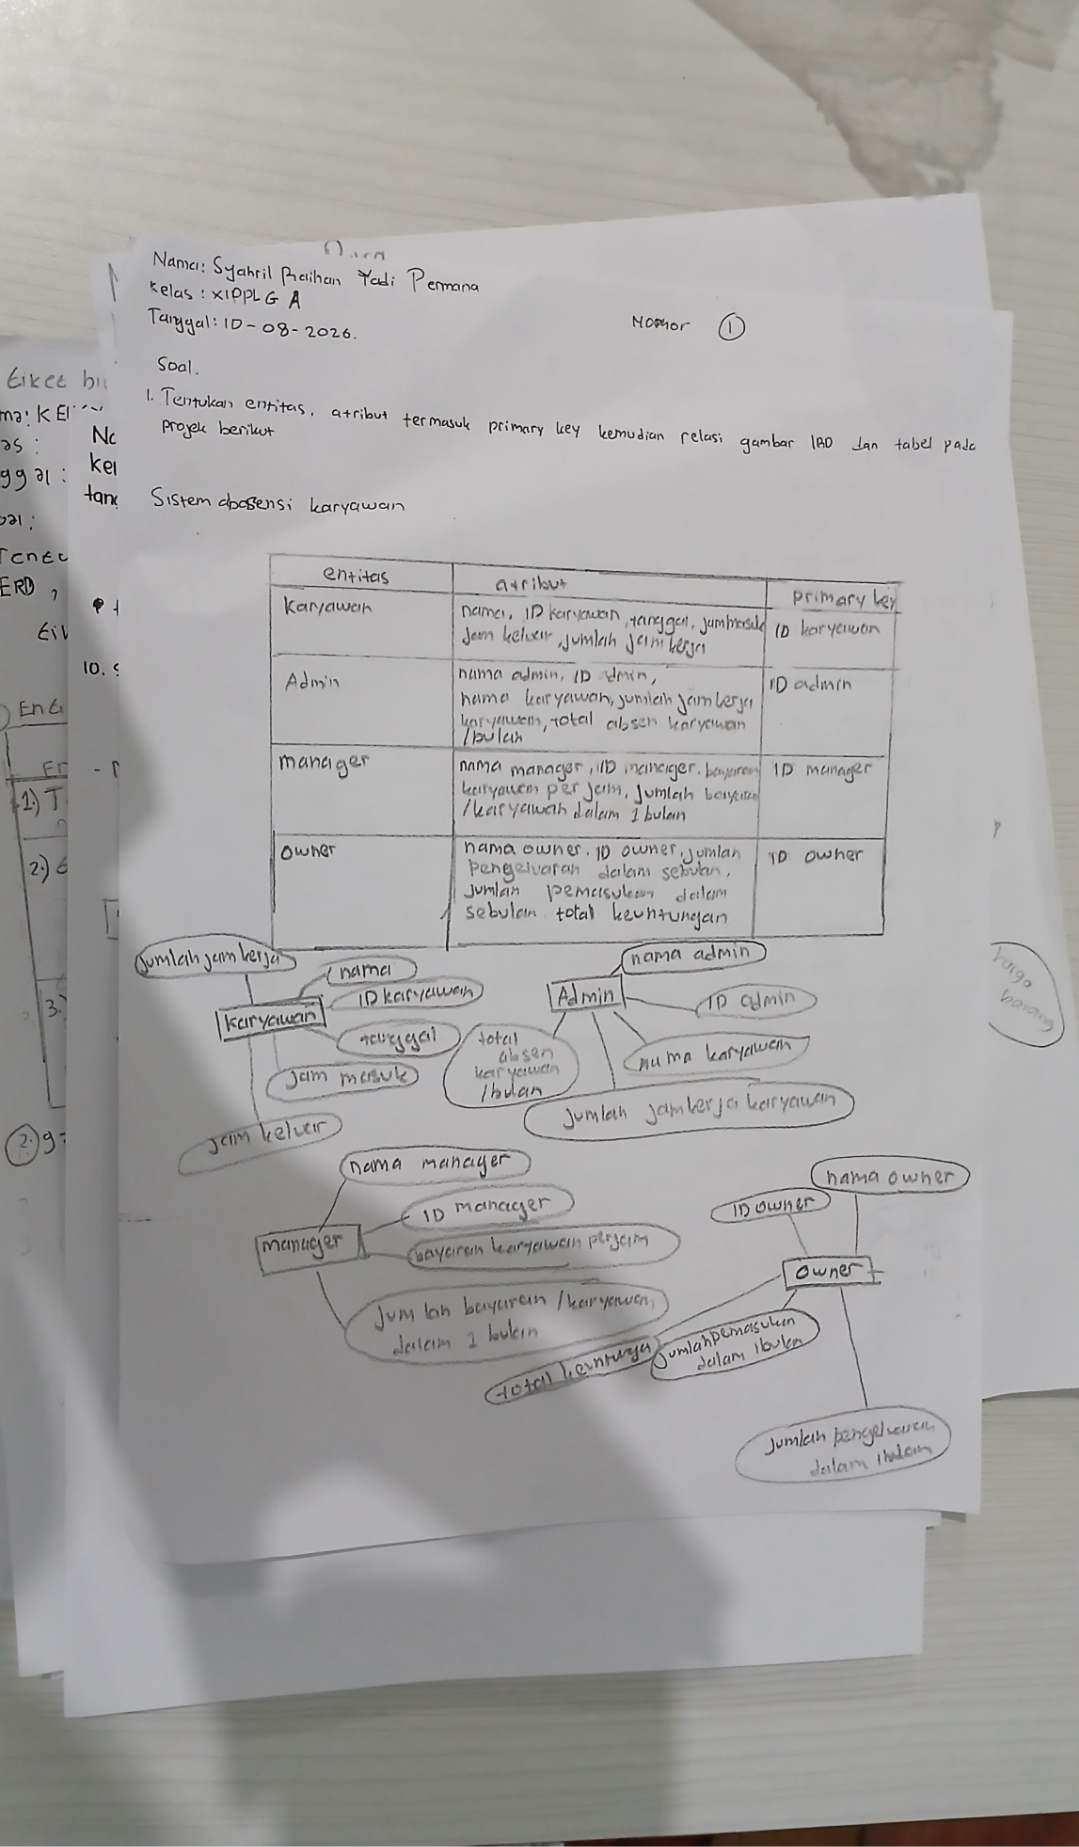 Nama: Syahril Raihan Yadi Permana
Kelas : XIPPLG A
Tanggal: 10-08-2026.
Nomor 1
Soal.
1. Tentukan entitas, atribut termasuk primary key kemudian relasi gambar ERD dan tabel pada
projek berikut
Sistem absensi karyawan
entitas atribut primary key
Karyawan nama, ID karyawan, tanggal, jam masuk ID karyawan
jam keluar, jumlah jam kerja
Admin nama admin, ID admin, ID admin
nama karyawan, jumlah jam kerja
karyawan, total absen karyawan
/bulan
manager nama manager, ID manager, bayaran ID manager
karyawan per jam, jumlah bayaran
/karyawan dalam 1 bulan
owner nama owner, ID owner, jumlah ID owner
pengeluaran dalam sebulan,
jumlah pemasukan dalam
sebulan. total keuntungan
jumlah jam kerja
nama
ID karyawan
karyawan
tanggal
jam masuk
jam keluar
nama admin
Admin
ID admin
total
absen
karyawan
/bulan
nama karyawan
jumlah jam kerja karyawan
nama manager
ID manager
manager
bayaran karyawan perjam
jumlah bayaran /karyawan
dalam 1 bulan
nama owner
ID owner
owner
jumlah pemasukan
dalam 1 bulan
jumlah pengeluaran
dalam 1 bulan
harga
barang
Eiket
ERD,
2.)
3.)
10.